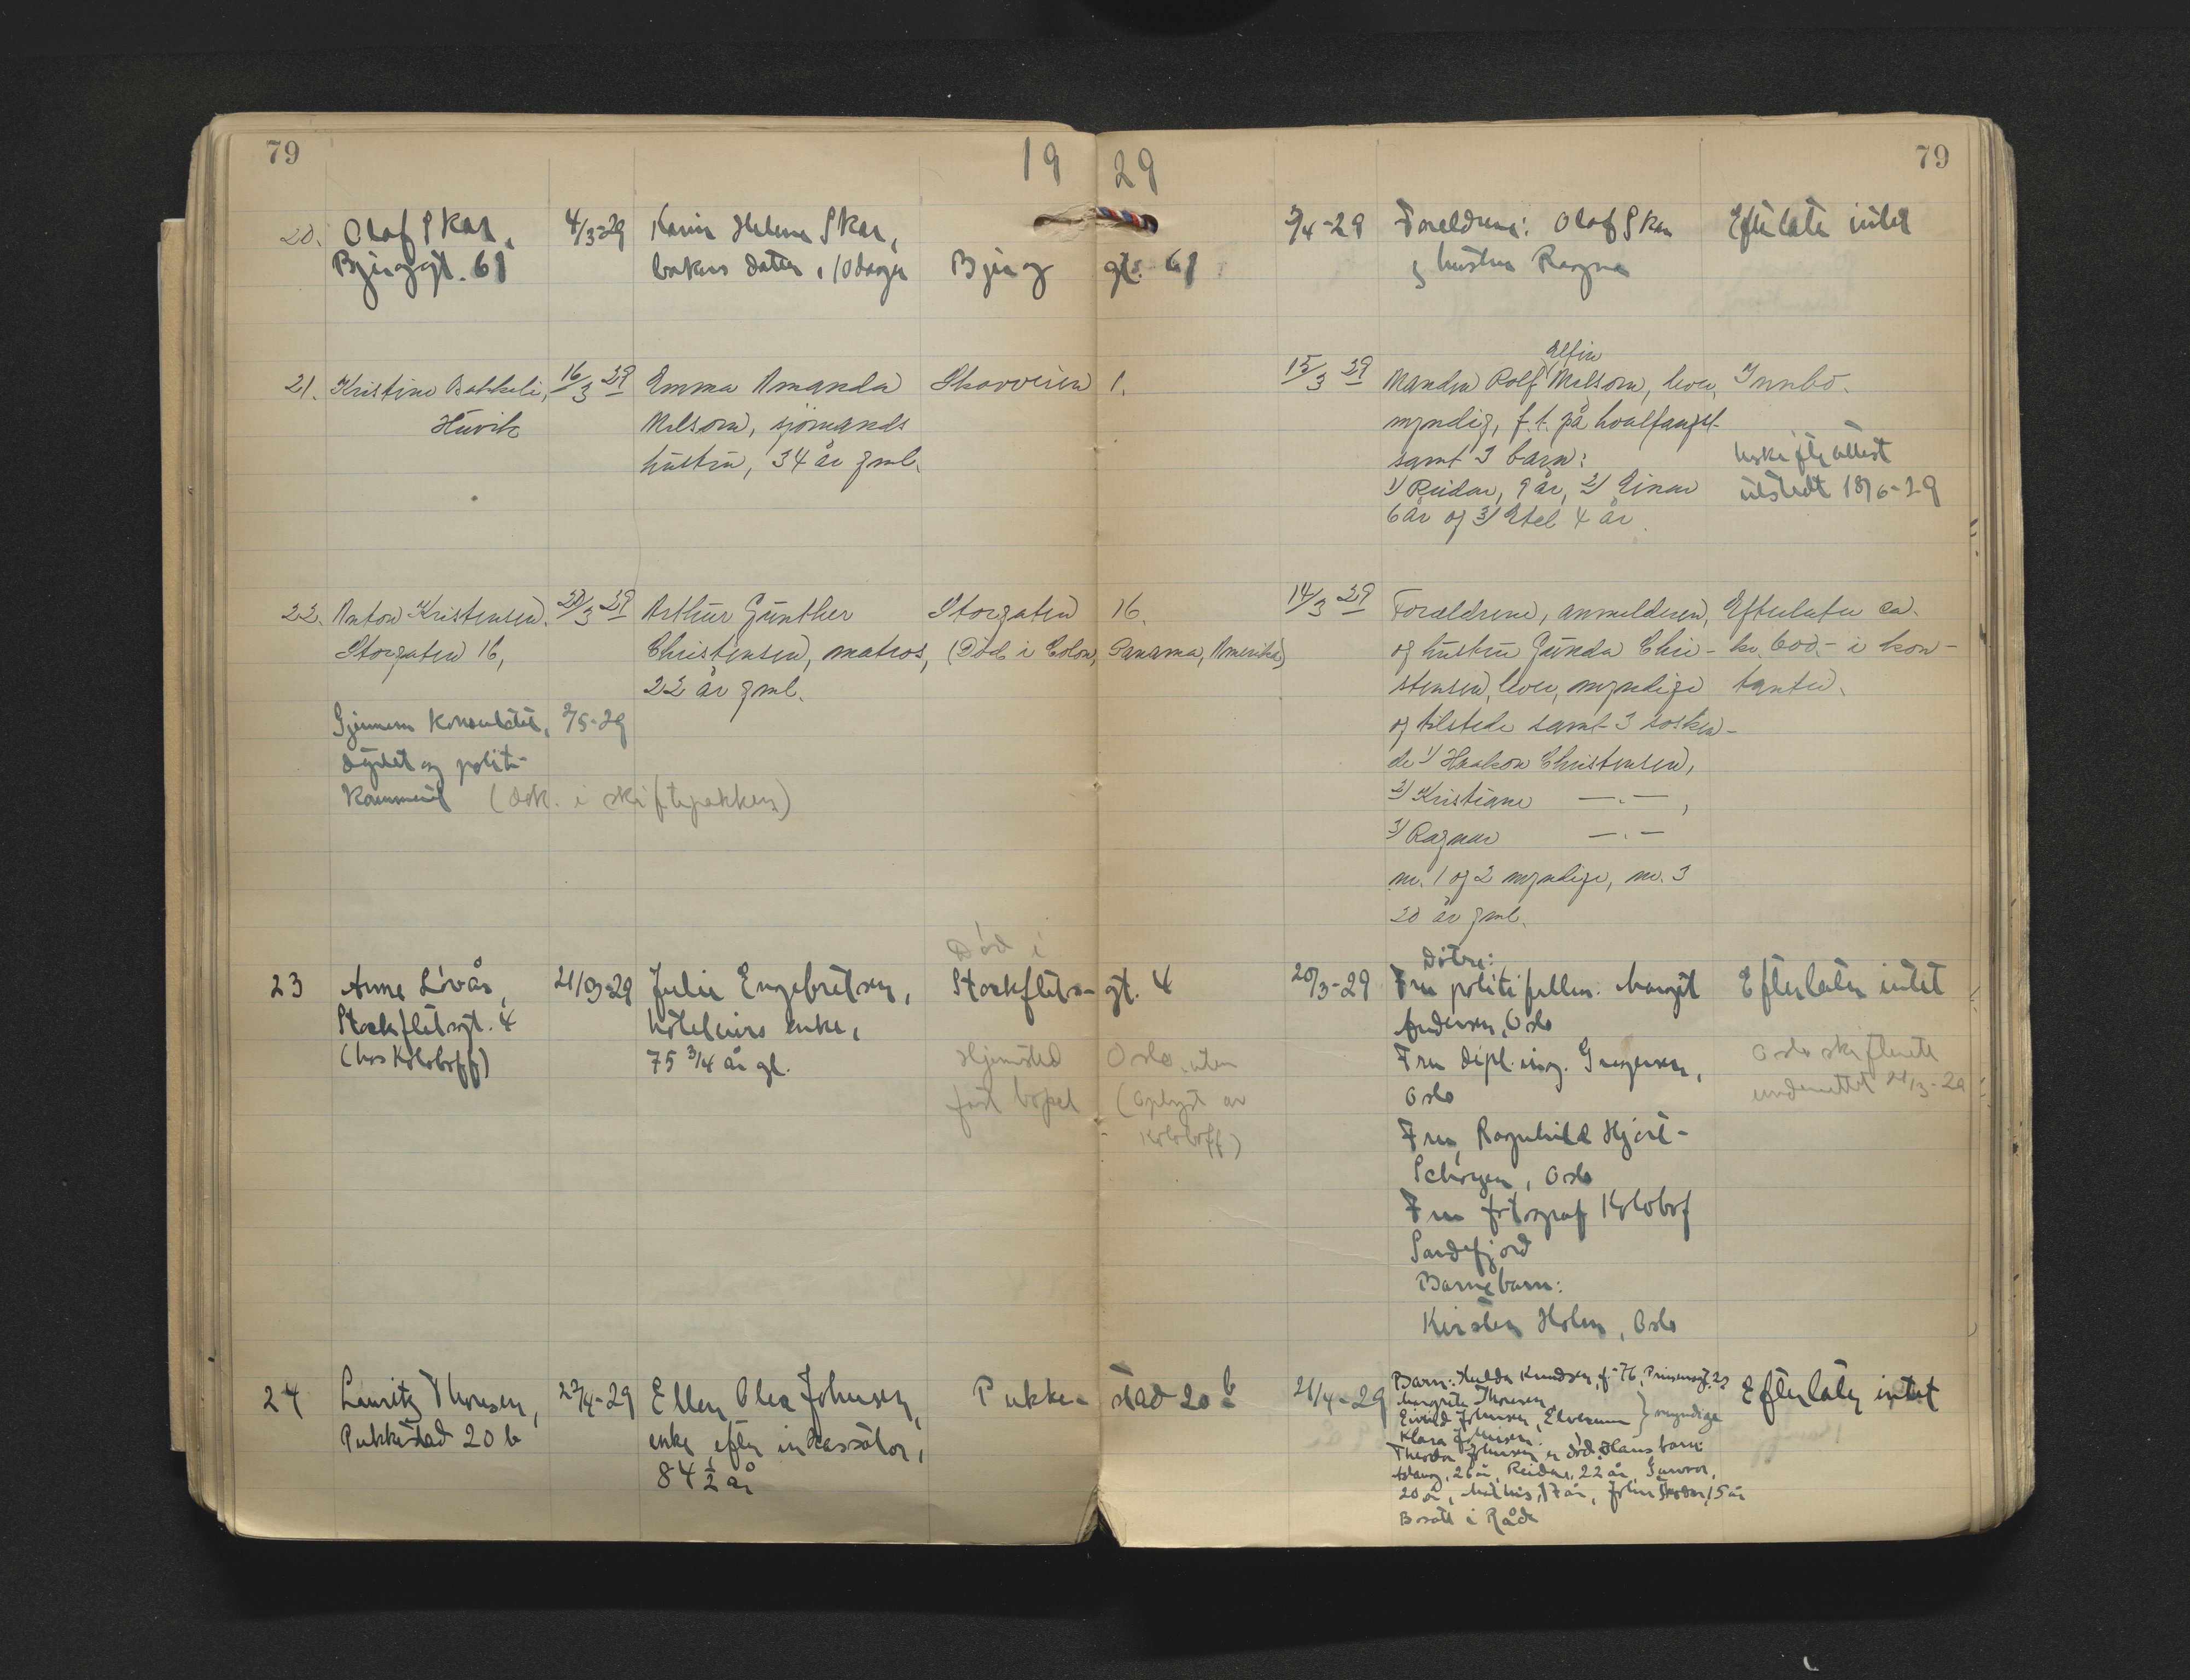 79
19 29
79
20. Olaf Skar, 4/3-29 Karin Helene Skar, 3/4-29 Foreldrene: Olaf Skar Efterlater intet
Bjerggt. 61 bakers datter, 10 dager Bjerg gt. 61 og hustru Ragna
Elfin
21. Kristine Bakkeli, 16/3 29 Emma Amanda Skovveien 1. 15/3 29 Manden Rolf Melsom, lever, Innbo.
Huvik Melsom, sjømands myndig, f.t. på hvalfangst
hustru, 34 år gml. samt 3 barn: Uskifteattest
1) Reidar, 9 år, 2) Einar utstedt 18/6-29
6 år og 3) Etel 4 år.
22. Anton Kristensen, 20/3 29 Arthur Günther Storgaten 16. 14/3 29 Forældrene, anmelderen, Efterlater ca.
Storgaten 16, Christensen, matros, (Død i Colon, Panama, Amerika) og hustru Gunda Chri- kr. 600,- i kon-
22 år gml. stensen, lever, myndige tanter.
Gjennem Konsulatet, 2/5-29 og tilstede samt 3 søsken-
og politi- de 1) Haakon Christensen,
kammeret (dok. i skiftepakken) 2) Kristiane —.— ,
3) Ragnar —.—
nr. 1 og 2 myndige, nr. 3
20 år gml.
Død i Døtre:
23 Anne Løvås, 21/3-29 Julie Engebretsen, Stockflets- gt. 4 20/3-29 Fru politifullm. Margit Efterlater intet
Stockfletsgt. 4 enke, Andersen, Oslo
(hos Koloboff) 75 3/4 år gl. Hjemsted Oslo, uten Fru dipl. ing. Oslo skifterett
fast bopel (oplyst av Oslo underrettet 21/3-29
Koloboff) Fru Ragnhild Hjort-
Oslo
Fru fotograf Kolobof
Sandefjord
Barnebarn:
Kirsten Holm, Oslo
24 Lauritz Thoresen, 22/4-29 Ellen Olea Johnsen, Pukke- stad 20 b 21/4-29 Barn: Hulda Knudsen, f. 76, Efterlater intet
Pukkestad 20 b enke efter inkassator, Margrete Thoresen
84 1/2 år Eivind Johnsen, Elverum } myndige
Klara Johnsen
Johnsen er død. Hans barn:
Aslaug, 26 år, Reidar, 22 år, Gunvor,
20 år, 17 år, John 15 år
Bosatt i Råde